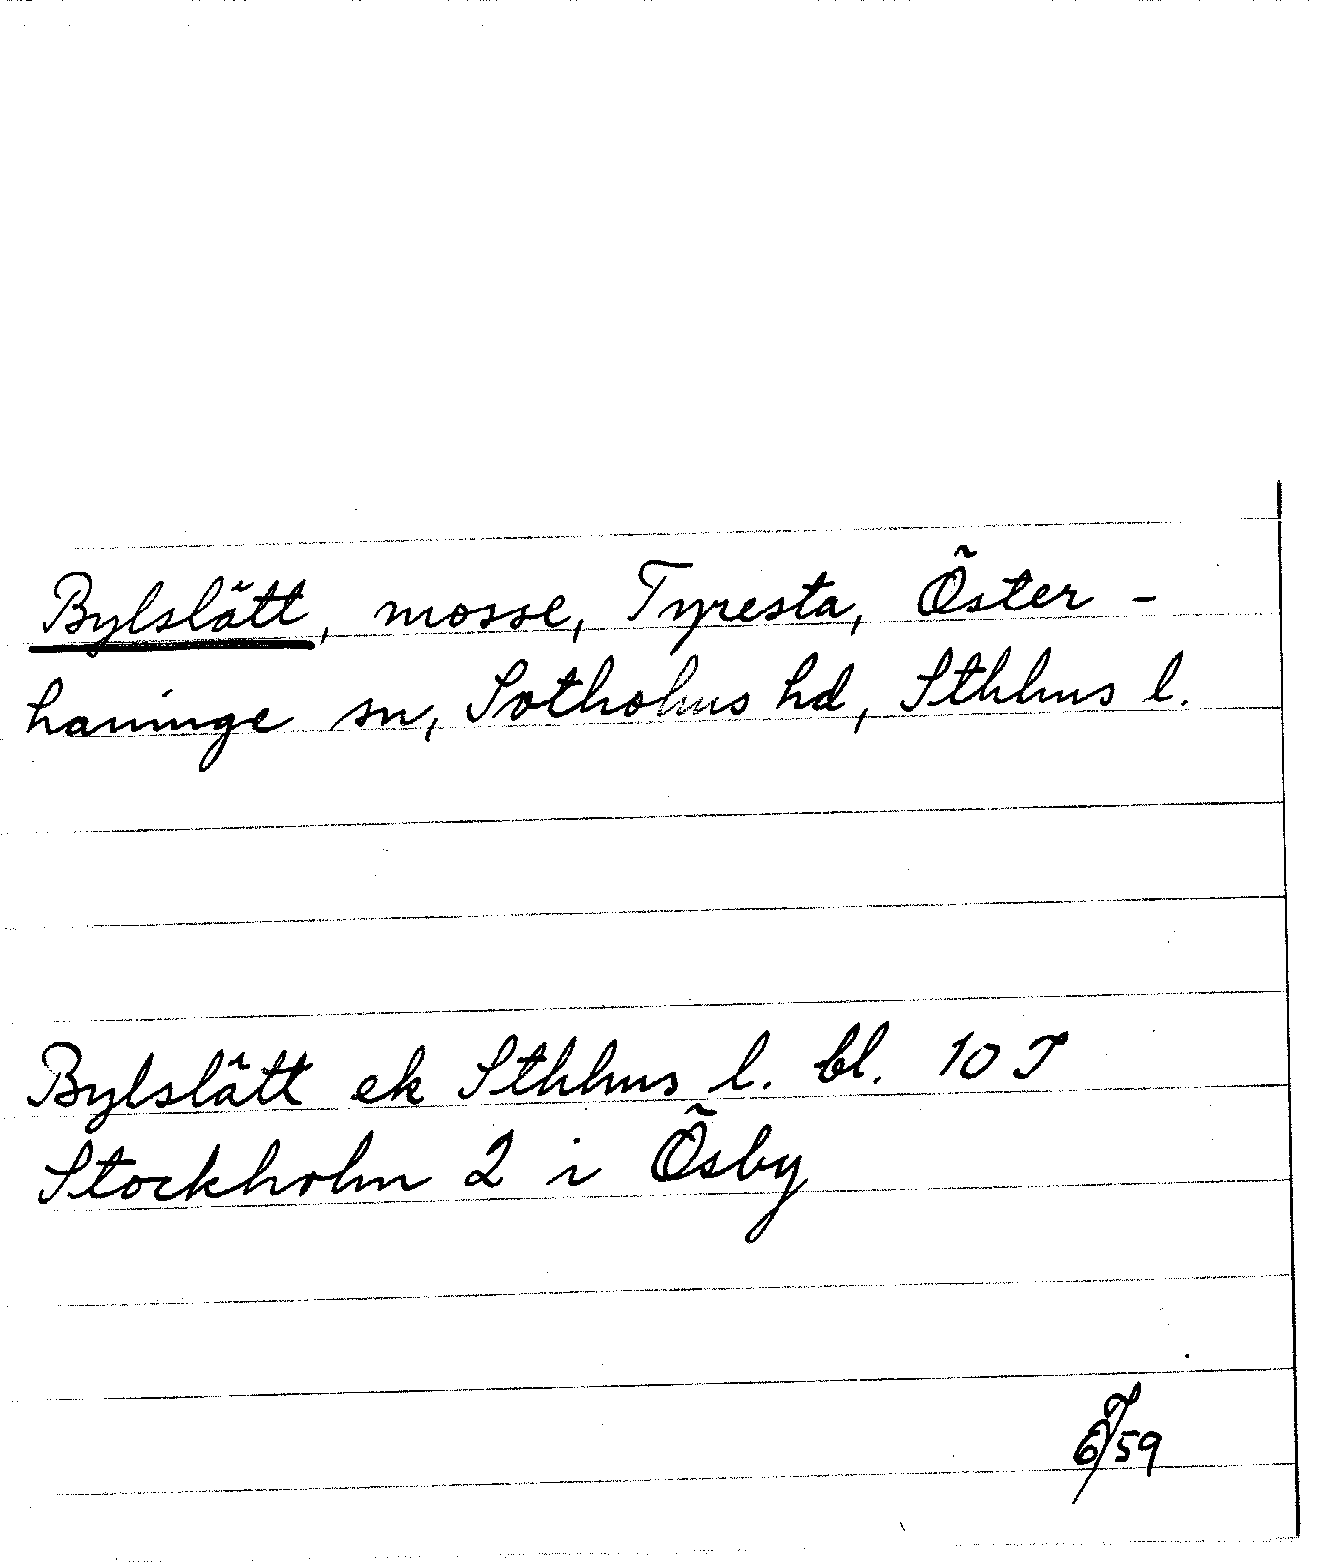 Bylslätt, mosse, Tyresta, Öster-
haninge sn, Sotholms hd, Sthlms l.
Bylslätt ek Sthlms l. bl. 10 J
Stockholm 2 i Ösby
/59